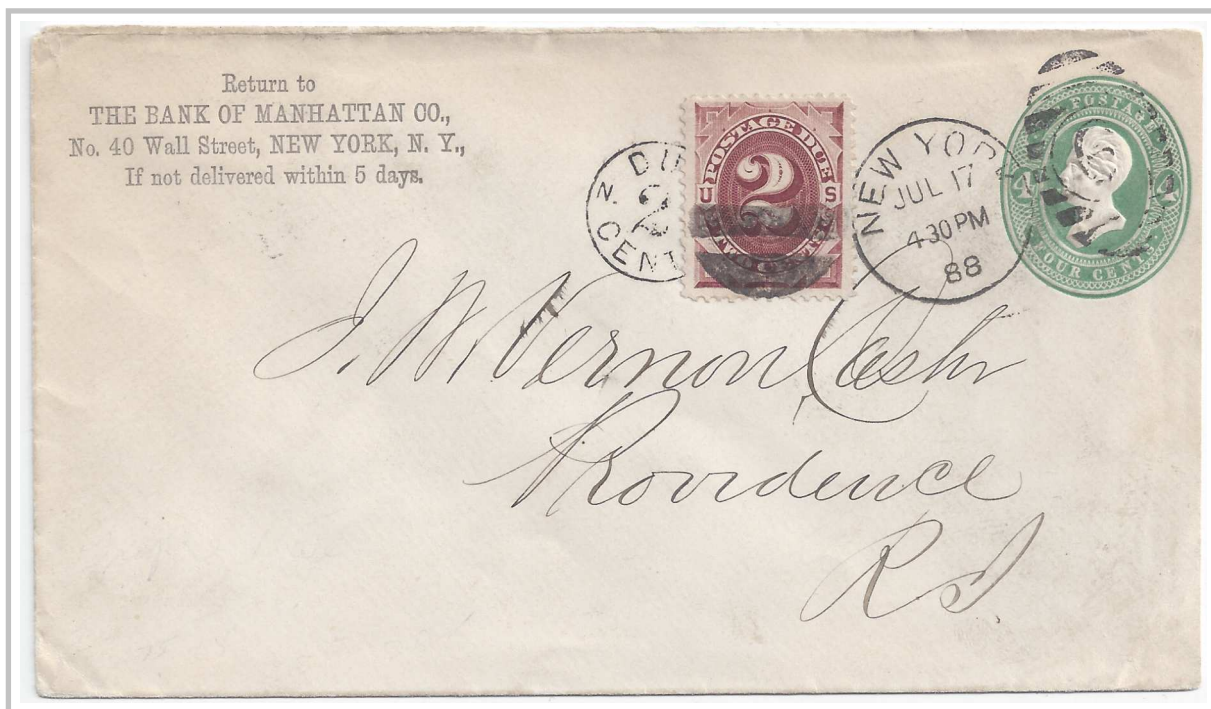 Return to
THE BANK OF MANHATTAN CO.,
No. 40 Wall Street, NEW YORK, N. Y.,
If not delivered within 5 days.
DUE
2
CENTS
POSTAGE DUE
2
U S
NEW YORK
JUL 17
4 30 PM
88
POSTAGE
FOUR CENTS
J. W. Vernon, Cashr
Providence
R I